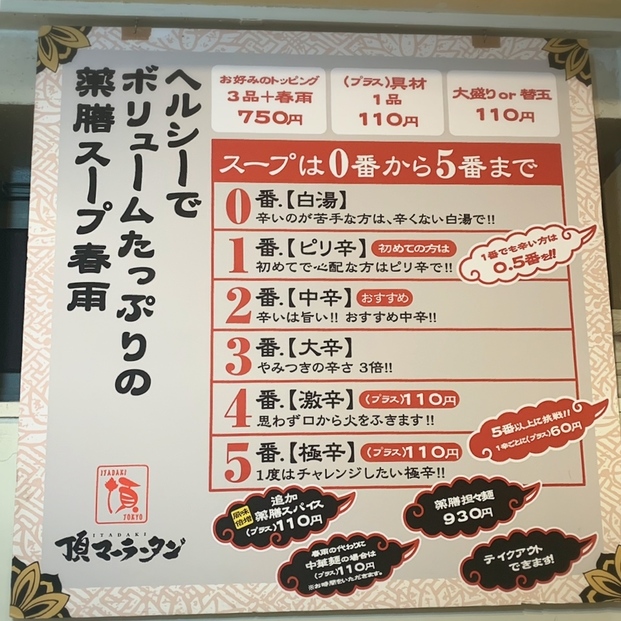 ヘルシーで
ボリュームたっぷりの
薬膳スープ春雨
お好みのトッピング
3品+春雨
750円
(プラス)具材
1品
110円
大盛り or 替玉
110円
スープは0番から5番まで
0番.【白湯】
辛いのが苦手な方は、辛くない白湯で!!
1番.【ピリ辛】 初めての方は
初めてで心配な方はピリ辛で!!
1番でも辛い方は
0.5番を!!
2番.【中辛】 おすすめ
辛いは旨い!! おすすめ中辛!!
3番.【大辛】
やみつきの辛さ 3倍!!
4番.【激辛】 (プラス)110円
思わず口から火をふきます!!
5番.【極辛】 (プラス)110円
1度はチャレンジしたい極辛!!
5番以上に挑戦!!
1辛ごとに(プラス)60円
ITADAKI
頂
TOKYO
ITADAKI
頂マーラータン
風味倍増
追加
薬膳スパイス
(プラス)110円
薬膳担々麺
930円
春雨の代わりに
中華麺の場合は
(プラス)110円
※お時間をいただきます。
テイクアウト
できます!